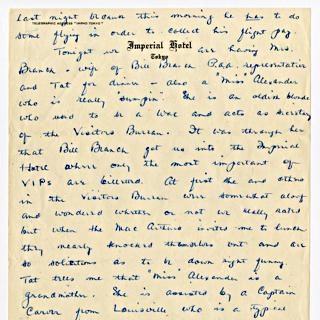 last night because this morning he has to do
TELEGRAPHIC ADDRESS "IMPHO TOKYO"
some flying in order to collect his flight pay.
Imperial Hotel
Tokyo
Tonight we are having Mrs.
Branch - wife of Bill Branch P.a.a. representative
and Tat for dinner also a "Miss" Alexander
who is really "sumpin". She is an oldish blonde
who used to be a Wac and acts as secretary
of the Visitors Bureau. It was through her
that Bill Branch got us into the Imperial
Hotel where only the most important of
VIPs are billeted. At first she and others
in the Visitors Bureau were somewhat along
and wondered whether or not we really rated
but when the Mac Arthurs invited me to lunch
they nearly knocked themselves out and are
so solicitous as to be down right funny.
Tat tells me that "Miss" Alexander is a
grandmother. She is assisted by a Captain
Carver from Louisville who is a typical